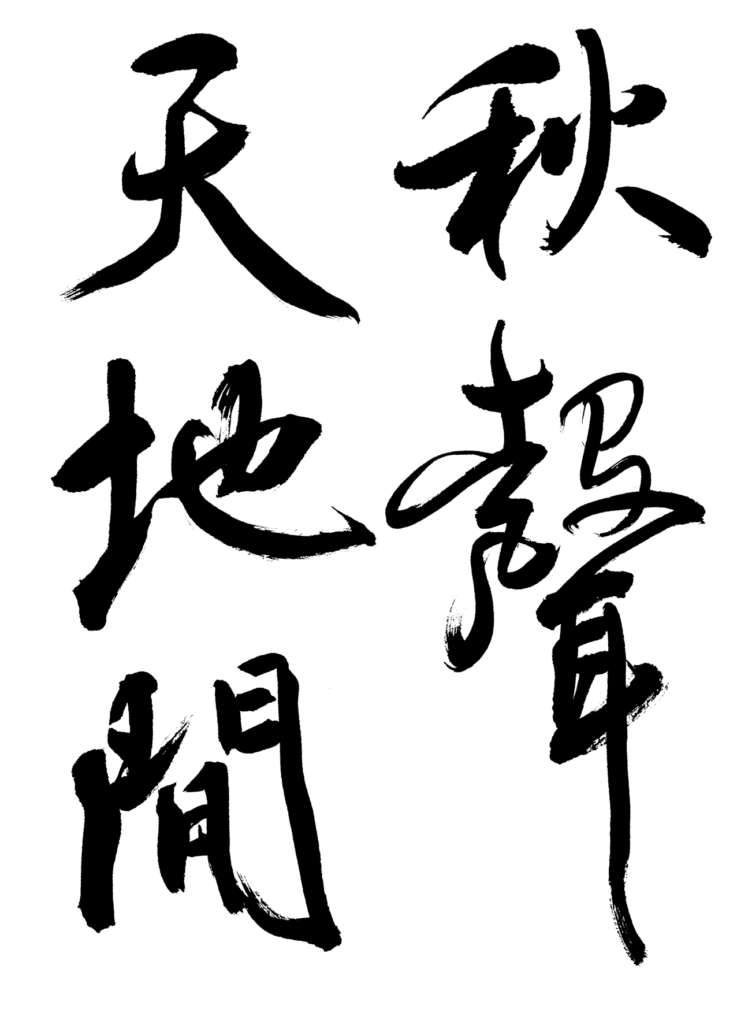 秋聲
天地間